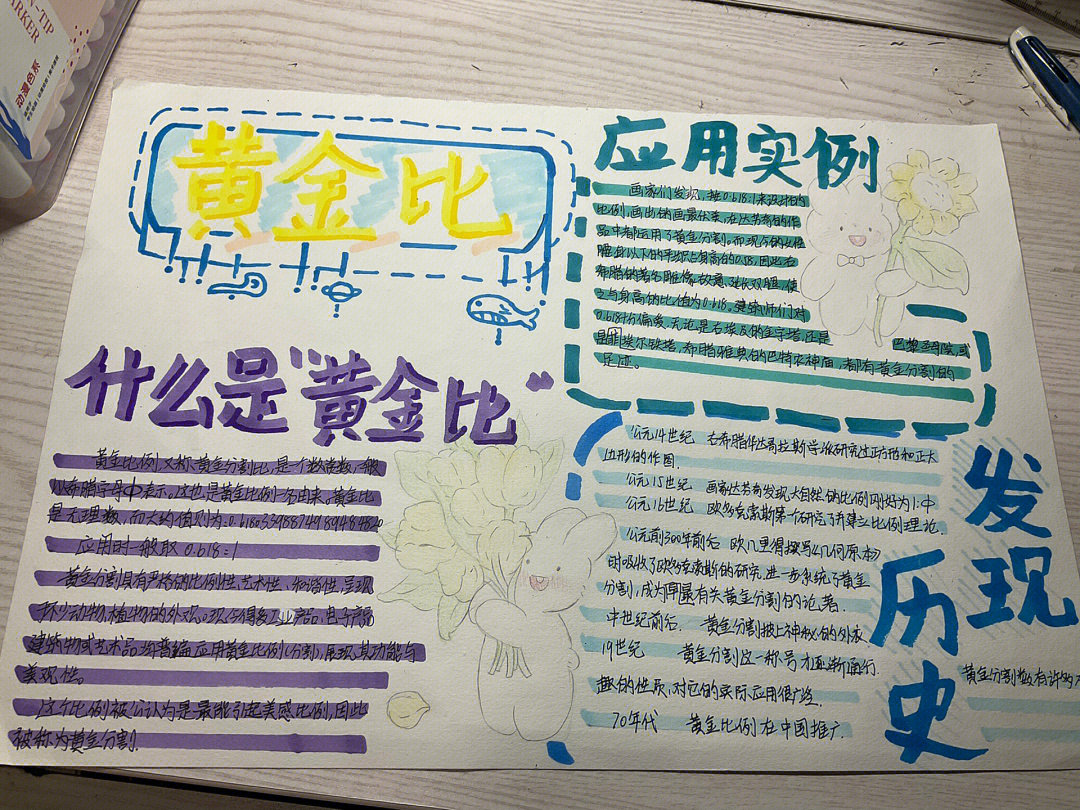 N-TIP
MARKER
动漫色系
黄金比
什么是“黄金比”
黄金比例，又称黄金分割比，是一个数学常数，一般
以希腊字母中表示。这也是黄金比例一名由来。黄金比
是无理数，而大约值则为：0.6180339887498948482
应用时一般取 0.618:1
黄金分割具有严格的比例性、艺术性、和谐性，呈现
不少动物植物的外观。现今得多工业产品、电子产品
建筑物或艺术品均普遍应用黄金比例分割，展现其功能与
美观性。
这个比例被公认为是最能引起美感比例，因此
被称为黄金分割.
应用实例
画家们发现，按0.618:1来设计的
比例，画出的画最优美，在达芬奇的作
品中都运用了黄金分割。而现今的女性
腰部以下的平均占身高的0.58，因此古
希腊的著名雕像故意延长双腿，使
之与身高的比值为0.618。建筑师们对
0.618十分偏爱，无论是古埃及的金字塔，还是
巴黎圣母院，或
是 埃尔铁塔，希腊雅典的巴特农神庙，都有黄金分割的
足迹。
发现
历史
公元14世纪 古希腊毕达哥拉斯学派研究过正方形和正大
边形的作图.
公元15世纪 画家达芬奇发现大自然的比例刚好为1:中
公元16世纪 欧多克索斯第一个研究了并建立比例理论.
公元前300年前后 欧几里得撰写《几何原本》
时吸收了欧多克索斯的研究，进一步系统了黄金
分割，成为 最 有关黄金分割的论著.
中世纪前后. 黄金分割披上神秘的外衣
19世纪 黄金分割这一称号才逐渐通行.
黄金分割数有许的
趣的性质，对它的实际应用很广泛.
70年代 黄金比例在中国推广.